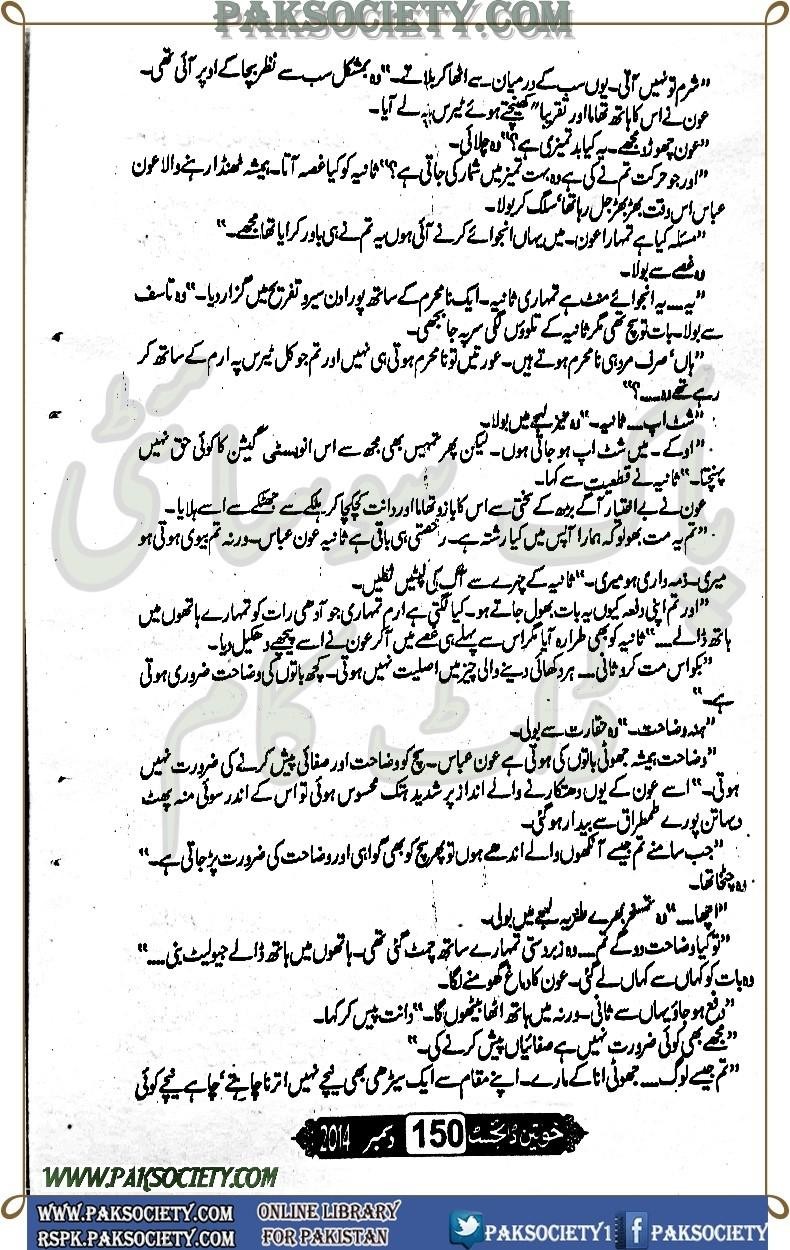 PAKSOCIETY.COM
"شرم تو نہیں آتی۔ یوں سب کے درمیان سے اٹھا کر بلاتے۔" وہ بمشکل سب سے نظر بچا کے اوپر آئی تھی۔
عون نے اس کا ہاتھ تھاما اور تقریباً کھینچتے ہوئے ٹیرس پہ لے آیا۔
"عون چھوڑو مجھے۔ یہ کیا بدتمیزی ہے؟" وہ چلائی۔
"اور جو حرکت تم نے کی ہے وہ بہت تمیز میں شمار کی جاتی ہے؟" ثانیہ کو کیا غصہ آتا۔ ہمیشہ ٹھنڈا رہنے والا عون
عباس اس وقت بھڑ بھڑ جل رہا تھا، سلگ کر بولا۔
"مسئلہ کیا ہے تمہارا عون۔ میں یہاں انجوائے کرنے آئی ہوں یہ تم نے ہی باور کرایا تھا مجھے۔"
وہ غصے سے بولا۔
"یہ۔۔۔ یہ انجوائے منٹ ہے تمہاری ثانیہ۔ ایک نامحرم کے ساتھ پورا دن سیرو تفریح میں گزار دیا۔" وہ تاسف
سے بولا۔ بات تو سچ تھی مگر ثانیہ کے تلوؤں لگی سر پہ جا بجھی۔
"ہاں، صرف مرد ہی نامحرم ہوتے ہیں۔ عورتیں تو نامحرم ہوتی ہی نہیں اور تم جو کل ٹیرس پہ ارم کے ساتھ کر
رہے تھے وہ۔۔۔؟"
"شٹ اپ۔۔۔ ثانیہ۔" وہ تیز لہجے میں بولا۔
"اوکے۔ میں شٹ اپ ہو جاتی ہوں۔ لیکن پھر تمہیں بھی مجھ سے اس انویسٹی گیشن کا کوئی حق نہیں
پہنچتا۔" ثانیہ نے قطعیت سے کہا۔
عون نے بے اختیار آگے بڑھ کے سختی سے اس کا بازو تھاما اور دانت کچکچا کر ہلکے سے جھٹکے سے اسے ہلایا۔
"تم یہ مت بھولو کہ ہمارا آپس میں کیا رشتہ ہے۔ رخصتی ہی باقی ہے ثانیہ عون عباس۔ ورنہ تم بیوی ہوتی ہو
میری۔ ذمہ داری ہو میری۔" ثانیہ کے چہرے سے آگ کی لپٹیں نکلیں۔
"اور تم اپنی دفعہ کیوں یہ بات بھول جاتے ہو۔ کیا لگتی ہے ارم تمہاری جو آدھی رات کو تمہارے ہاتھوں میں
ہاتھ ڈالے۔۔۔" ثانیہ کو بھی طرارہ آیا مگر اس سے پہلے ہی غصے میں آ کر عون نے اسے پیچھے دھکیل دیا۔
"بکواس مت کرو ثانی۔۔۔ ہر دکھائی دینے والی چیز میں اصلیت نہیں ہوتی۔ کچھ باتوں کی وضاحت ضروری ہوتی
ہے۔"
"ہنہ وضاحت۔" وہ حقارت سے بولی۔
"وضاحت ہمیشہ جھوٹی باتوں کی ہوتی ہے عون عباس۔ سچ کو وضاحت اور صفائی پیش کرنے کی ضرورت نہیں
ہوتی۔" اسے عون کے یوں دھتکارنے والے انداز پر شدید ہتک محسوس ہوئی تو اس کے اندر سوئی منہ پھٹ
دیہاتن پورے طمطراق سے بیدار ہو گئی۔
"جب سامنے تم جیسے آنکھوں والے اندھے ہوں تو پھر سچ کو بھی گواہی اور وضاحت کی ضرورت پڑ جاتی ہے۔"
وہ چٹخا تھا۔
"اچھا۔۔۔" وہ تمسخر بھرے طنزیہ لہجے میں بولی۔
"تو کیا وضاحت دو گے تم۔۔۔ وہ زبردستی تمہارے ساتھ چمٹ گئی تھی۔ ہاتھوں میں ہاتھ ڈالے جیولیٹ بنی۔۔۔"
وہ بات کو کہاں سے کہاں لے گئی۔ عون کا دماغ گھومنے لگا۔
"دفع ہو جاؤ یہاں سے ثانی۔ ورنہ میں ہاتھ اٹھا بیٹھوں گا۔" دانت پیس کر کہا۔
"مجھے بھی کوئی ضرورت نہیں ہے صفائیاں پیش کرنے کی۔"
"تم جیسے لوگ۔۔۔ جھوٹی انا کے مارے۔ اپنے مقام سے ایک سیڑھی بھی نیچے نہیں اترنا چاہتے، چاہے نیچے کوئی
خوتین ڈائجسٹ 150 دسمبر 2014
پاک سوسائٹی
ڈاٹ کام
WWW.PAKSOCIETY.COM
WWW.PAKSOCIETY.COM
RSPK.PAKSOCIETY.COM
ONLINE LIBRARY
FOR PAKISTAN
PAKSOCIETY1
PAKSOCIETY